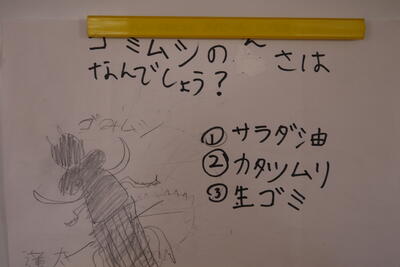 ゴミムシの えさは
なんでしょう？
ゴみムシ
①サラダ油
②カタツムリ
③生ゴミ